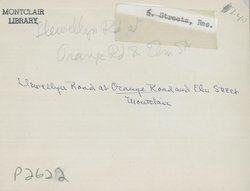 MONTCLAIR
LIBRARY,
S. Streets, Res.
Llewellyn Rd at
Orange Rd & Elm St
Llewellyn Road at Orange Road and Elm Street
Montclair
P2622